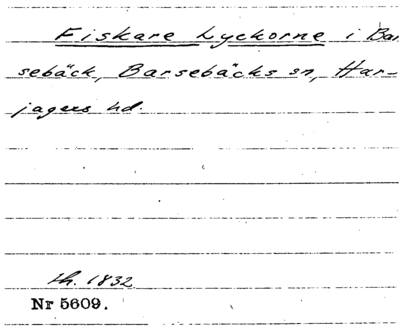 Fiskare Lyckorne i Bar
sebäck, Barsebäcks sn, Har-
jagers hd.
th. 1832
Nr 5609.